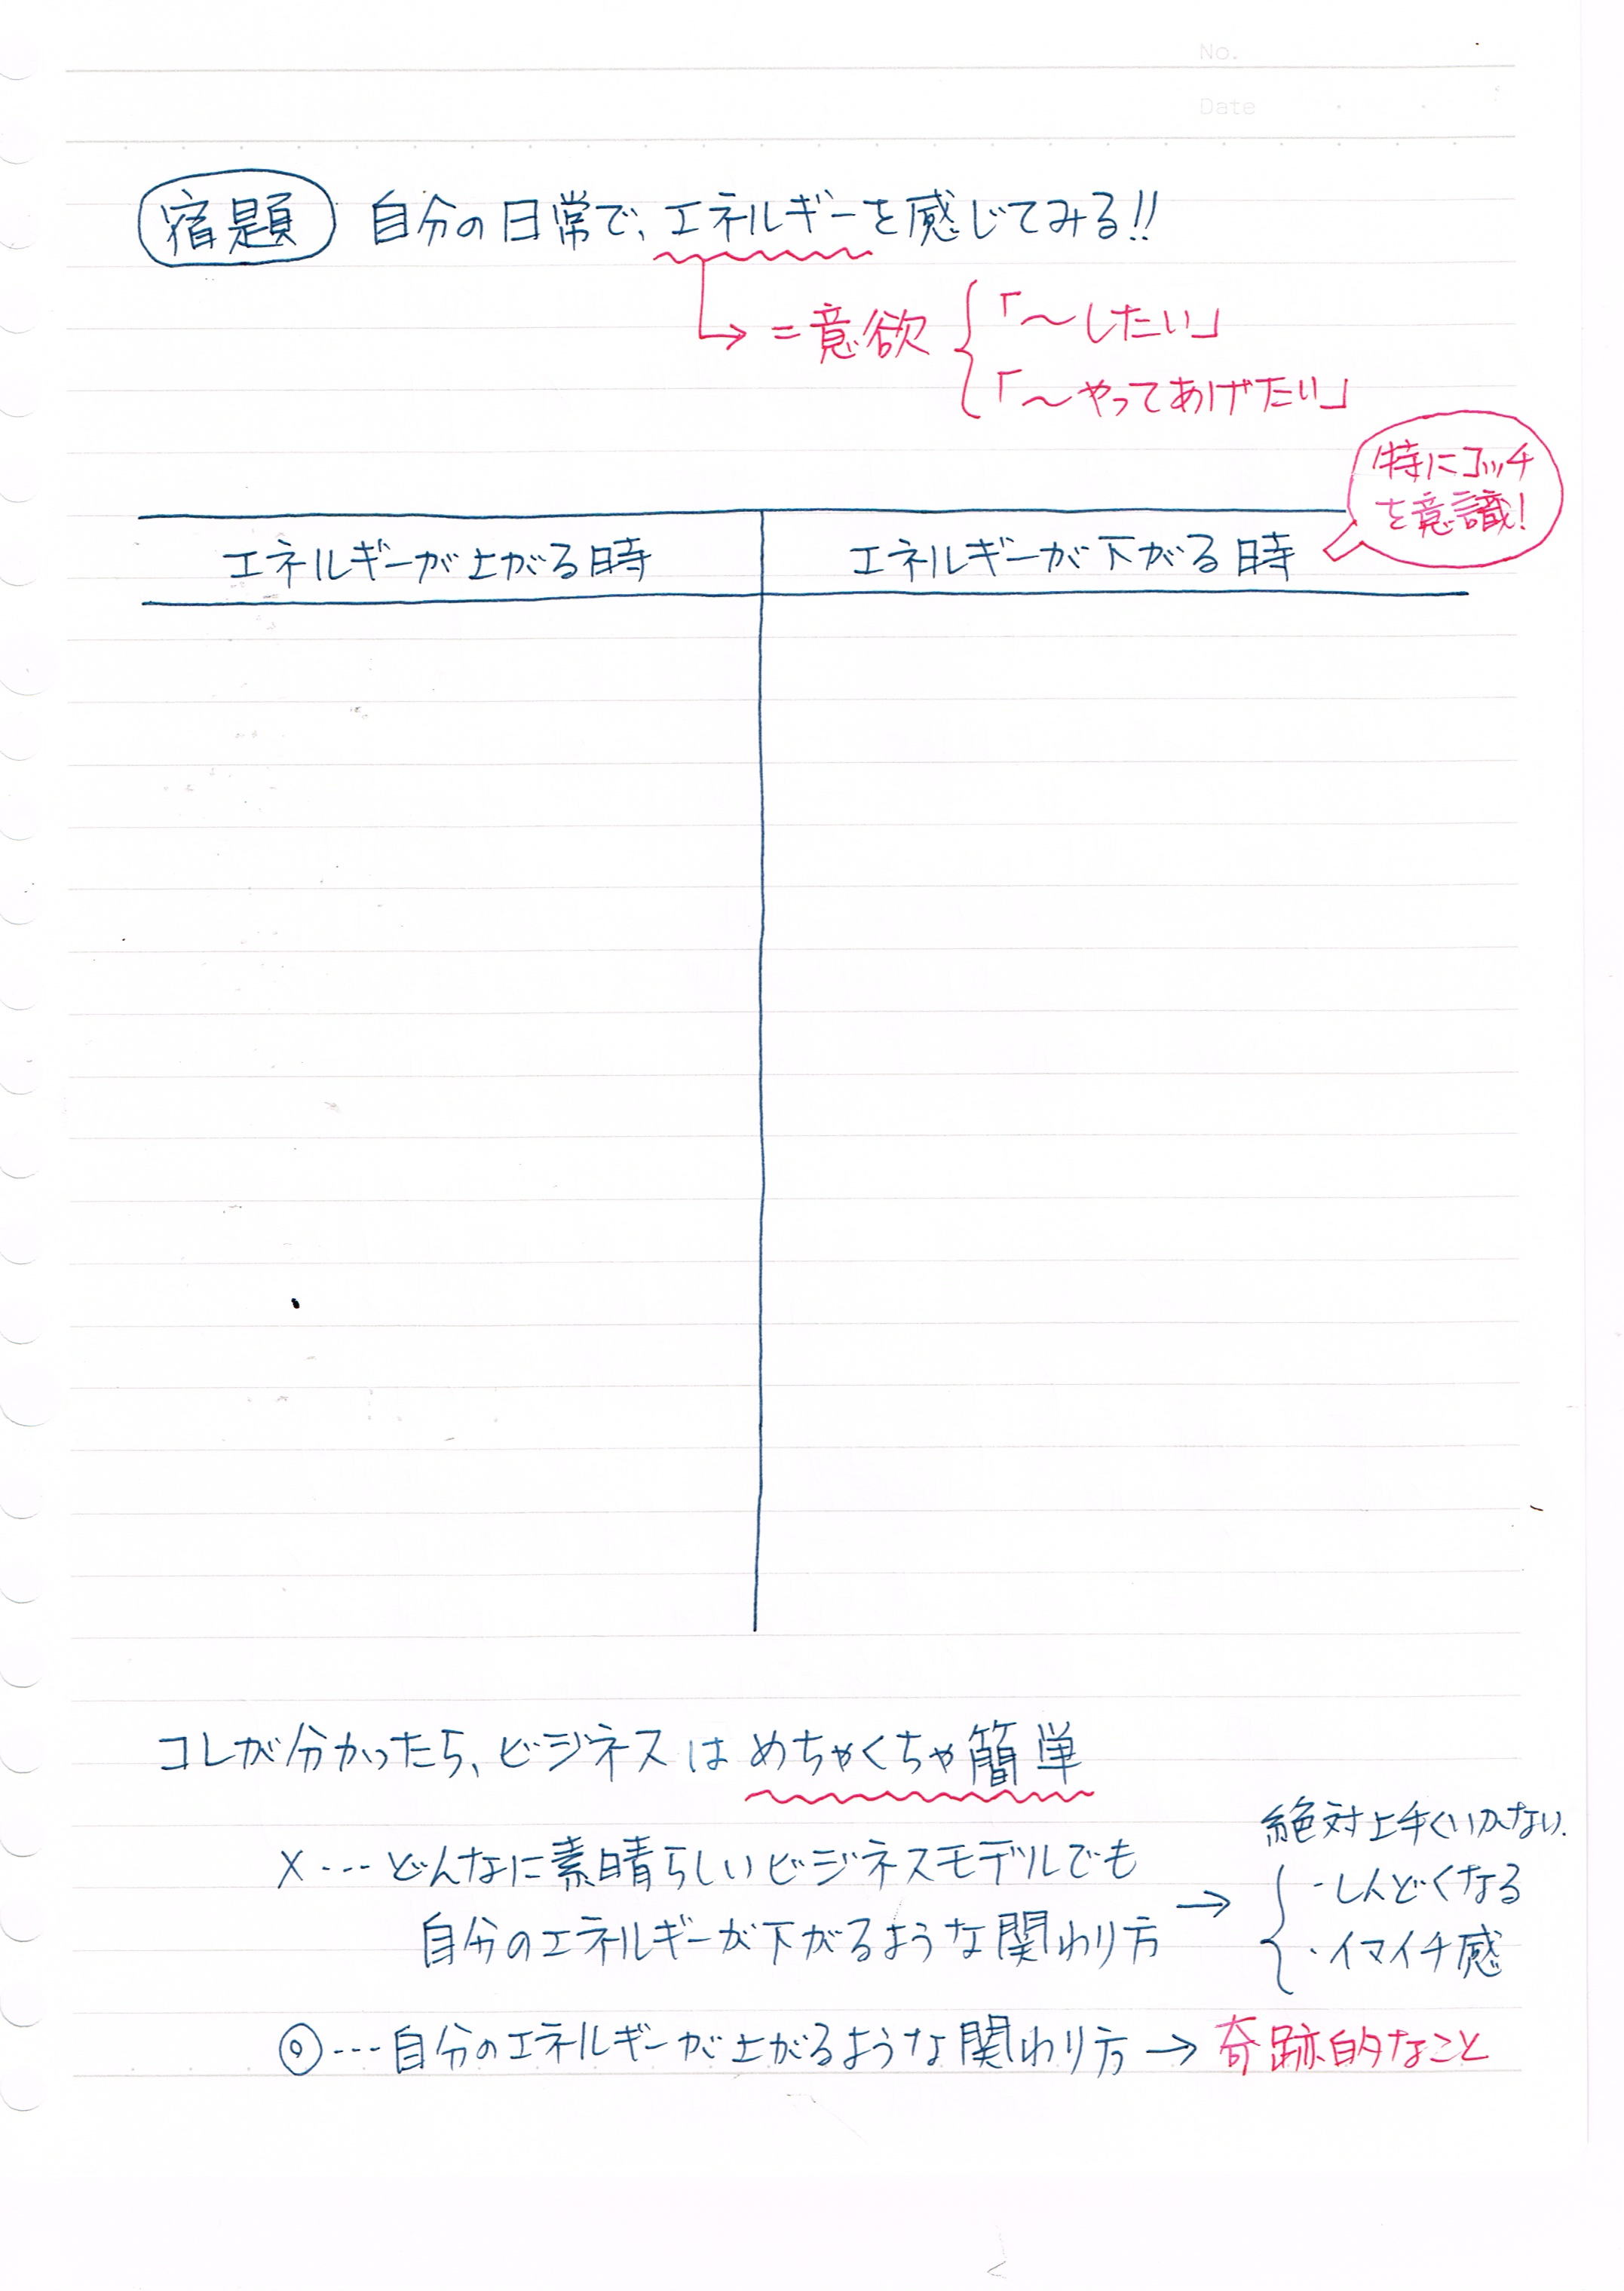 No.
Date
宿題 自分の日常で、エネルギーを感じてみる!!
→ =意欲 { 「〜したい」
「〜やってあげたい」
特にコッチ
を意識!
エネルギーが上がる時 エネルギーが下がる時
コレが分かったら、ビジネスはめちゃくちゃ簡単
× … どんなに素晴らしいビジネスモデルでも
自分のエネルギーが下がるような関わり方 →
絶対上手くいかない.
・しんどくなる
・イマイチ感
◎ … 自分のエネルギーが上がるような関わり方 → 奇跡的なこと